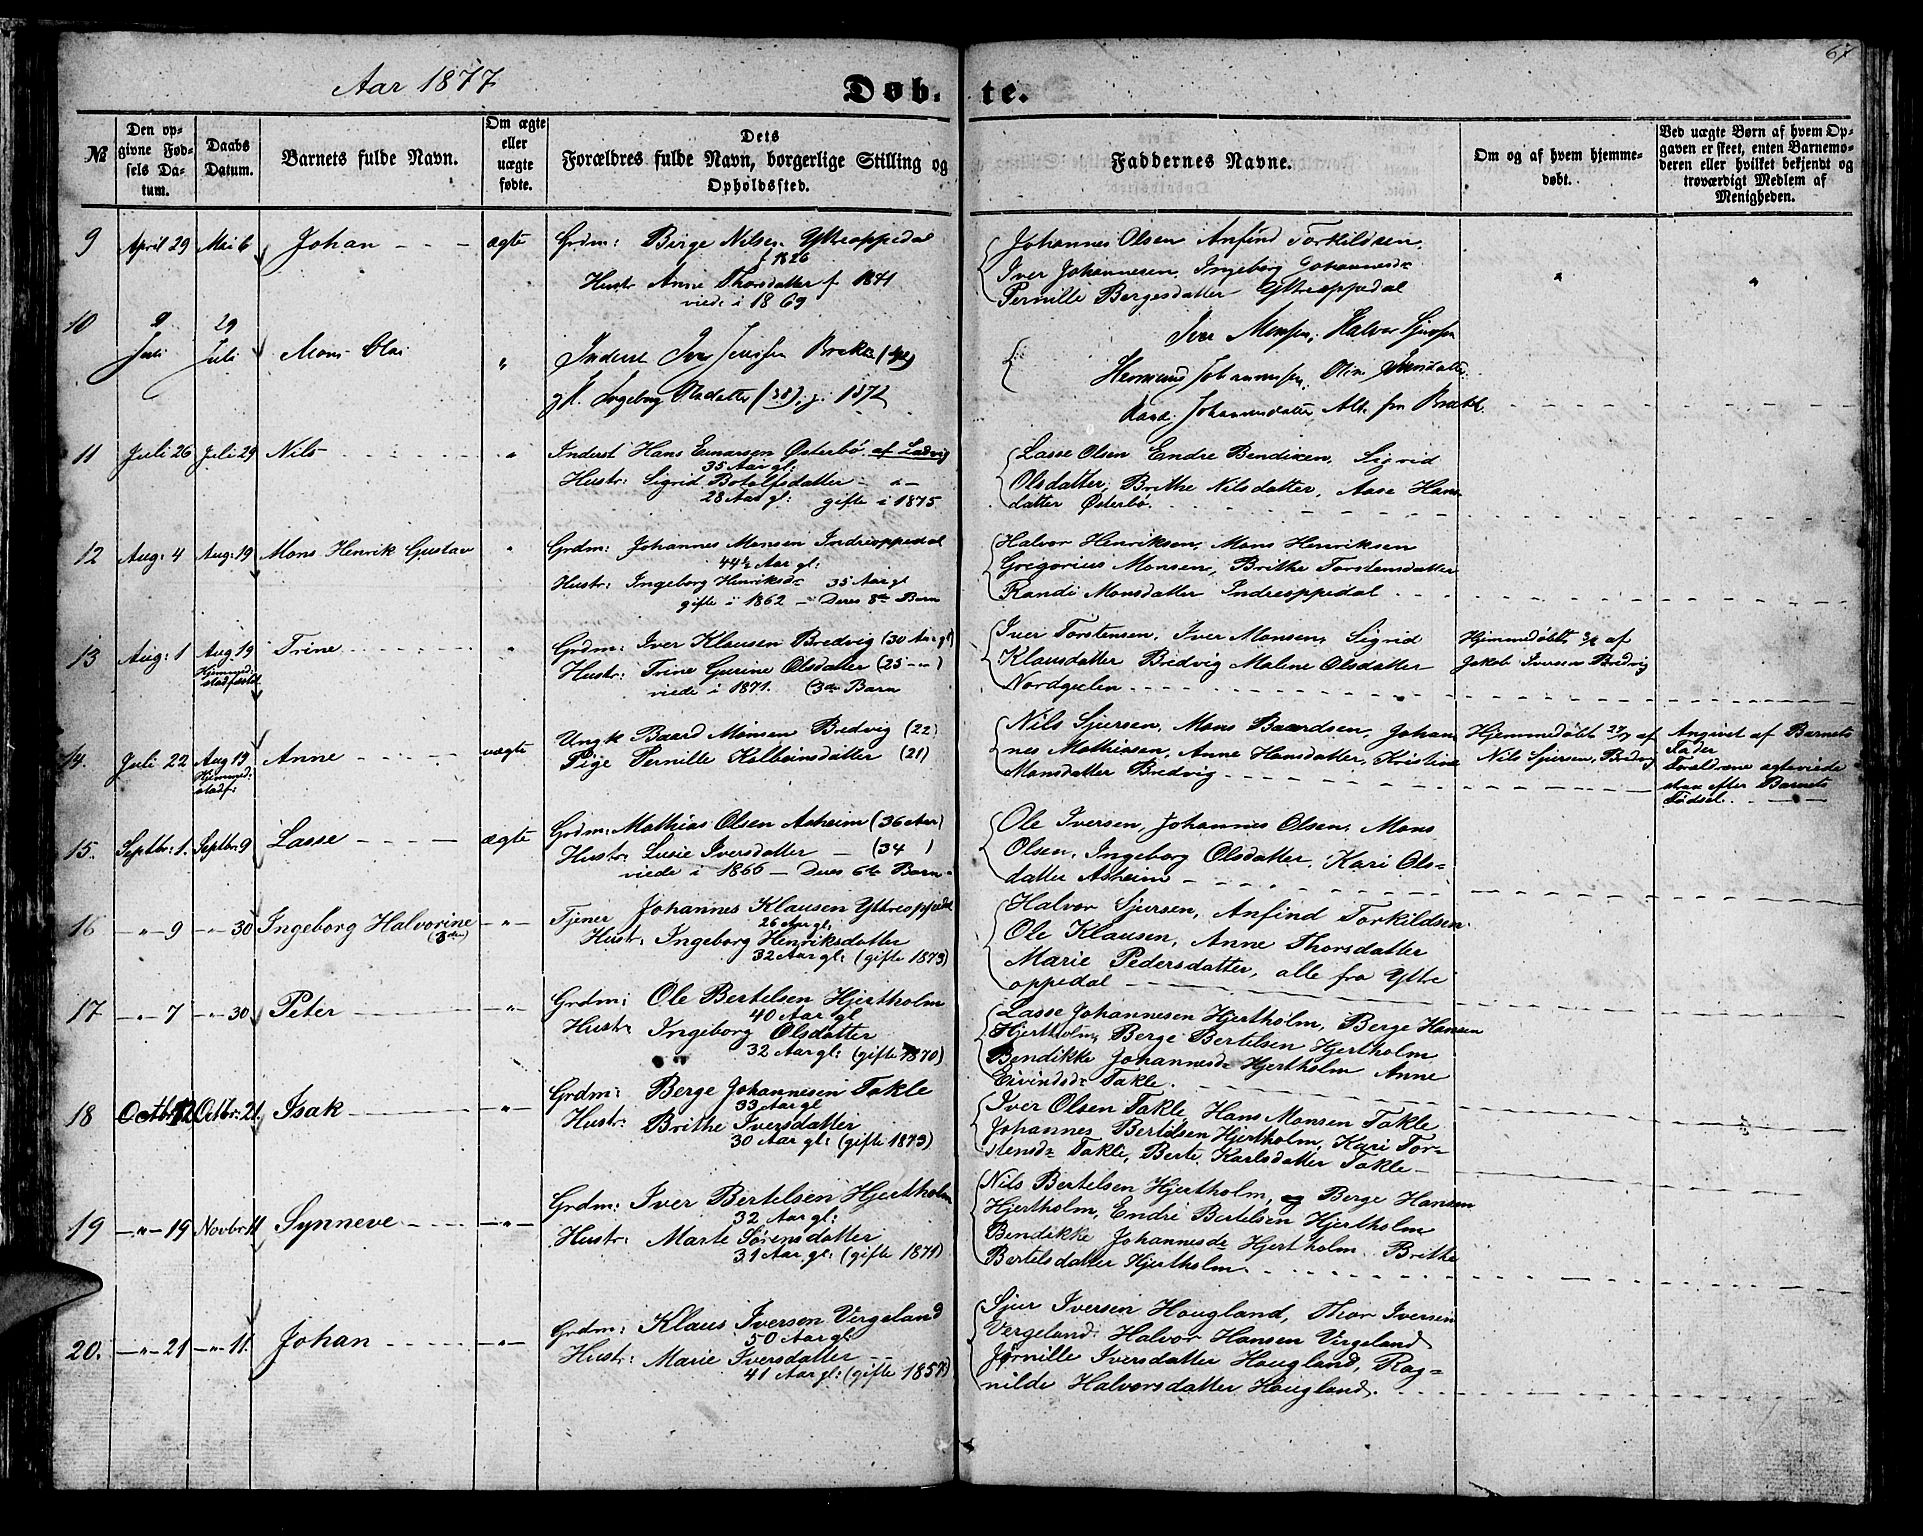 67
Aar 1877
Døb- te.
№
Den op-
givne Fød-
sels Da-
tum.
Daabs
Datum.
Barnets fulde Navn.
Om ægte
eller
uægte
fødte.
Dets
Forældres fulde Navn, borgerlige Stilling og
Opholdssted.
Faddernes Navne.
Om og af hvem hjemme-
døbt.
Ved uægte Børn af hvem Op-
gaven er skeet, enten Barnemo-
deren eller hvilket bekjendt og
troværdigt Medlem af
Menigheden.
9 April 29 Mai 6 Johan ægte
Grdm: Berge Nilsen Yttreoppedal
f 1826
Hustr Anne Thorsdatter f 1841
viede i 1869
Johannes Olsen Anfind Torkildsen,
Iver Johannesen, Ingeborg Johannesdr
Pernille Bergesdatter Yttreoppedal
10 9 Juli 29 Juli Mons Olai "
Inderst Iver Brekke
Ingeborg Olsdatter (38) g. 1872
Iver Monsen, Halvor Sjursen
Hermund Johannessen,
Johannesdatter Alle fra Brekke
11 Juli 26 Juli 29 Nils "
Inderst Hans Einarsen Østerbö af Ladvig
35 Aar gl:
Hustr: Sigrid Botolfsdatter - " -
28 Aar gl: gifte i 1875
Lasse Olsen Endre Bendixen, Sigrid
Olsdatter, Brithe Nilsdatter, Aase Hans
datter Østerbö
12 Aug: 4 Aug: 19 Mons Henrik Gustav "
Grdm: Johannes Monsen Indreoppedal
44½ Aar gl:
Hustr: Ingeborg Henriksdr 35 Aar gl
gifte i 1862 - Deres 8de Barn
Halvor Henriksen, Mons Henriksen
Gregorius Monsen, Brithe Torstensdatter
Randi Monsdatter Indreoppedal
13 Aug: 1 Aug. 19 Trine "
Hjemmed:
stadfæstd
Grdm: Iver Klausen Bredvig (30 Aar gl)
Hustr: Trine Gurine Olsdatter (25 - " )
viede i 1871. (3de Barn
Iver Torstensen, Iver Monsen, Sigrid
Klausdatter Bredvig Maline Olsdatter
Nordgulen
Hjemmedöbt 3/8 af
Jakob Iversen Bredvig
14. Juli 22 Aug 19 Anne uægte
Hjemmed:
stadf:
Ungk Baard Monsen Bredvig (22)
Pige Pernille Kolbeinsdatter (21)
Nils Sjursen, Mons Baardsen, Johan
nes Mathiasen, Anne Hansdatter, Kristine
Monsdatter Bredvig
Hjemmedöbt 27/7 af
Nils Sjursen, Bredvig
Angivet af Barnets
Fader
Forældrene ægteviede
strax efter Barnets
Födsel.
15. Septbr: 1. Septbr: 9 Lasse ægte
Grdm: Mathias Olsen Asheim (36 Aar)
Hustr: Lusie Iversdatter - (34 )
viede i 1866 - Deres 6te Barn
Ole Iversen, Johannes Olsen, Mons
Olsen, Ingeborg Olsdatter, Kari Ols=
datter Asheim
16 - " - 9 - " - 30 Ingeborg Halvorine - " -
(3die)
Tjener Johannes Klausen Yttreoppedal
26 Aar gl:
Hustr: Ingeborg Henriksdatter
32 Aar gl: (gifte 1873)
Halvor Sjursen, Anfind Torkildsen
Ole Klausen, Anne Thorsdatter
Marie Pedersdatter, alle fra Ytre
oppedal
17 - " - 7 - " - 30 Peter - " -
Grdm: Ole Bertelsen Hjertholm
40 Aar gl
Hustr. Ingeborg Olsdatter
32 Aar gl: (gifte 1870)
Lasse Johannesen Hjertholm, Berge Hansen
Hjertholm, Berge Bertelsen Hjertholm
Bendikke Johannesdr Hjertholm Anne
Eivindsdr Takle.
18 Octbr: 12 Octbr: 21. Isak - " -
Grdm: Berge Johannesen Takle
33 Aar gl
Hustr: Brithe Iversdatter
30 Aar gl: (gifte 1873)
Iver Olsen Takle, Hans Monsen Takle
Johannes Bertelsen Hjertholm, Kari Tor=
stensdr Takle, Berte Karlsdatter Takle
19 - " - 19 Novbr 11 Synneve - " -
Grdm: Iver Bertelsen Hjertholm
32 Aar gl:
Hustr: Marte Sörensdatter
31 Aar gl: (gifte 1871)
Nils Bertelsen Hjertholm, og Berge Hansen
Hjertholm, Endre Bertelsen Hjertholm
Bendikke Johannesdr Hjertholm, Brithe
Bertelsdatter Hjertholm.
20. - " - 21 - " - 11. Johan - " -
Grdm: Klaus Iverson Vergeland
50 Aar gl:
Hustr: Marie Iversdatter
41 Aar gl: (gifte 1857)
Sjur Iversen Hougland, Thor Iversen
Vergeland, Halvor Hansen Virgeland
Jörnille Iversdatter Hougland, Rag=
nilde Halvorsdatter Hougland.